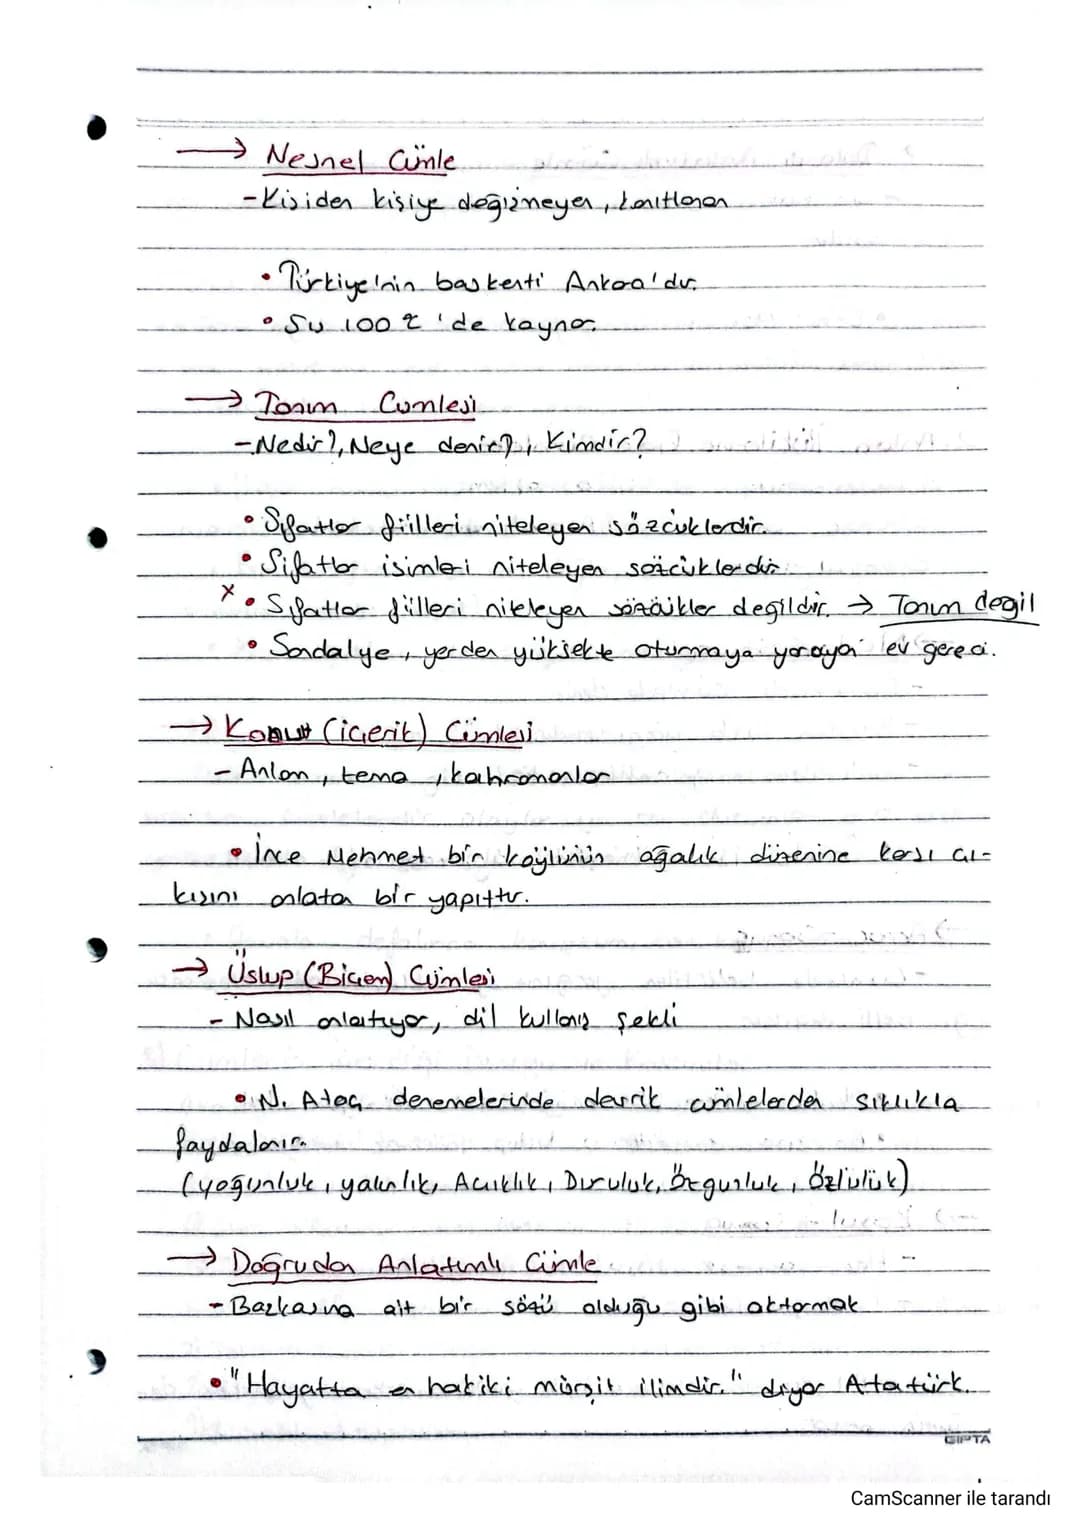 → Nesnel Cümle
- Kişiden kişiye değişmeyen, kanıtlanan
• Türkiye'nin başkenti Ankara'dır.
• Su 100 °C 'de kaynar.
→ Tanım Cümlesi
- Nedir?, Neye denir?, Kimdir?
• Sıfatlar fiilleri niteleyen sözcüklerdir.
• Sıfatlar isimleri niteleyen sözcüklerdir.
x • Sıfatlar fiilleri niteleyen sözcükler değildir. → Tanım değil
• Sandalye, yerden yüksekte oturmaya yarayan ev gereci.
→ Konu (içerik) Cümlesi
- Anlam, tema, kahramanlar
• İnce Mehmet bir köylünün ağalık düzenine karşı çı-
kışını anlatan bir yapıttır.
→ Üslup (Biçem) Cümlesi
- Nasıl anlatıyor, dil kullanış şekli
• N. Ataç denemelerinde devrik cümlelerden sıklıkla
faydalanır.
(yoğunluk, yalınlık, Açıklık, Duruluk, Özgünlük, Özlülük)
→ Doğrudan Anlatımlı Cümle
- Başkasına ait bir sözü olduğu gibi aktarmak
• "Hayatta en hakiki mürşit ilimdir." diyor Atatürk.
GIPTA
CamScanner ile tarandı